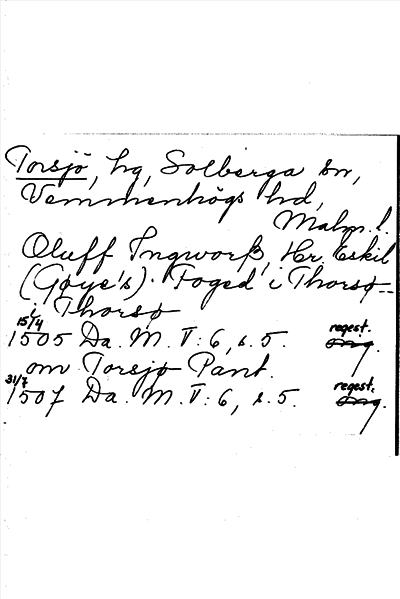 Torsjö, hg, Solberga sn,
Vemmenhögs hd,
Malm. l.
Oluff Ingworß, Hr. Eskil
(Gøye's) Foged i Thorsø
i Thorsø
15/4 1505 Da. M. V: 6, s. 5. regest.
om Torsjø Pant.
31/7 1507 Da. M. V: 6, s. 5. regest.